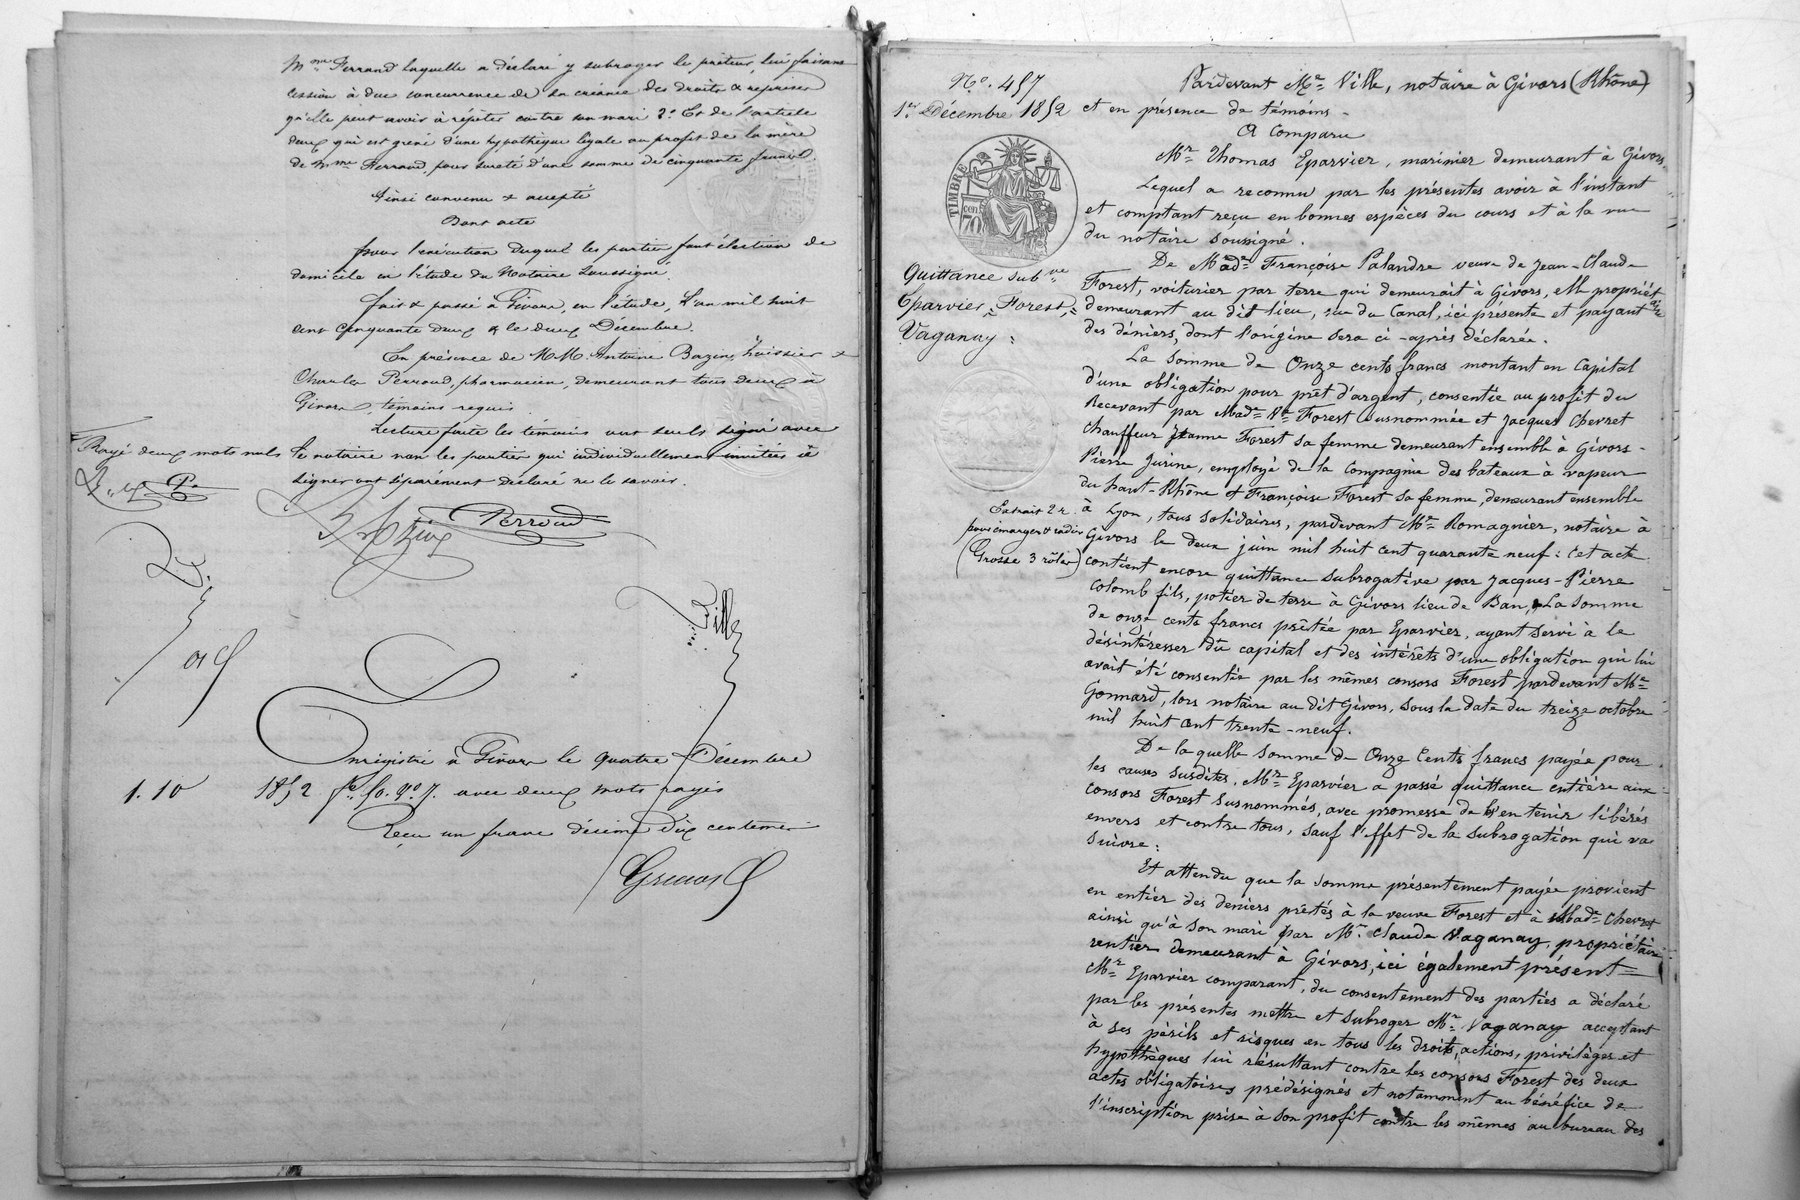 Mme Ferrand laquelle a déclaré y subroger le prêteur, lui faisant
cession à due concurrence de sa créance des droits & reprises
qu'elle peut avoir à répéter contre son mari 2º Et de l'article
deux qui est grevé d'une hypothèque légale au profit de la mère
de Mme Ferrand, pour sureté d'une somme de cinquante francs.
Ainsi convenu & accepté
Dont acte
Pour l'exécution duquel les parties font élection de
domicile en l'étude du Notaire Soussigné.
Fait & passé à Givors, en l'étude, L'an mil huit
cent cinquante deux & le deux Décembre.
En présence de M.M. Antoine Bazin, huissier &
Charles Perroud, pharmacien, demeurant tous deux à
Givors, témoins requis.
Lecture faite les témoins ont seuls signé avec
le notaire non les parties qui individuellement invitées à
signer ont séparément déclaré ne le savoir.
Rayé deux mots nuls
Bazin
Perroud
Ville
Enregistré à Givors le quatre Décembre
1852 fo. 50. Vo 7. avec deux mots rayés
1.10
Reçu un franc décime dix centimes
Nº. 457
1er Décembre 1852
TIMBRE
70
cen
Quittance subve
Eparvier = Forest, =
Vaganay :
Extrait 2 r.
pour émarger & radier
(Grosse 3 rôles)
Pardevant Me Ville, notaire à Givors (Rhône)
et en présence de témoins.
A Comparu
Mr Thomas Eparvier, marinier demeurant à Givors.
Lequel a reconnu par les présentes avoir à l'instant
et comptant reçu en bonnes espèces du cours et à la vue
du notaire soussigné.
De Made Françoise Palandre veuve de Jean-Claude
Forest, voiturier par terre qui demeurait à Givors, elle propriétaire
demeurant au dit lieu, rue du Canal, ici présente et payant
des deniers, dont l'origine sera ci-après déclarée.
La somme de Onze cents francs montant en capital
d'une obligation pour prêt d'argent, consentie au profit du
Recevant par Made Ve Forest susnommée et Jacques Chevret
chauffeur Jeanne Forest sa femme demeurant ensemble à Givors -
Pierre Jurine, employé de la compagnie des bateaux à vapeur
du haut-Rhône et Françoise Forest sa femme, demeurant ensemble
à Lyon, tous solidaires, pardevant Me Romagnier, notaire à
Givors le deux juin mil huit cent quarante neuf : cet acte
contient encore quittance subrogative par Jacques-Pierre
Colomb fils, potier de terre à Givors lieu de Ban, La somme
de onze cents francs prêtée par Eparvier, ayant servi à le
désintéresser du capital et des intérêts d'une obligation qui lui
avait été consentie par les mêmes consors Forest pardevant Me
Gonnard, lors notaire au dit Givors, sous la date du treize octobre
mil huit cent trente-neuf.
De laquelle somme de Onze Cents francs payée pour
les causes susdites, Mr Eparvier a passé quittance entière aux
consors Forest susnommés, avec promesse de les en tenir libérés
envers et contre tous, sauf l'effet de la subrogation qui va
suivre :
Et attendu que la somme présentement payée provient
en entier des deniers prêtés à la veuve Forest et à Made Chevret
ainsi qu'à son mari par Mr Claude Vaganay, propriétaire
rentier demeurant à Givors, ici également présent =
Mr Eparvier comparant, du consentement des parties a déclaré
par les présentes mettre et subroger Mr Vaganay acceptant
à ses périls et risques en tous les droits, actions, privilèges et
hypothèques lui résultant contre les consors Forest des deux
actes obligatoires prédésignés et notamment au bénéfice de
l'inscription prise à son profit contre les mêmes au bureau des